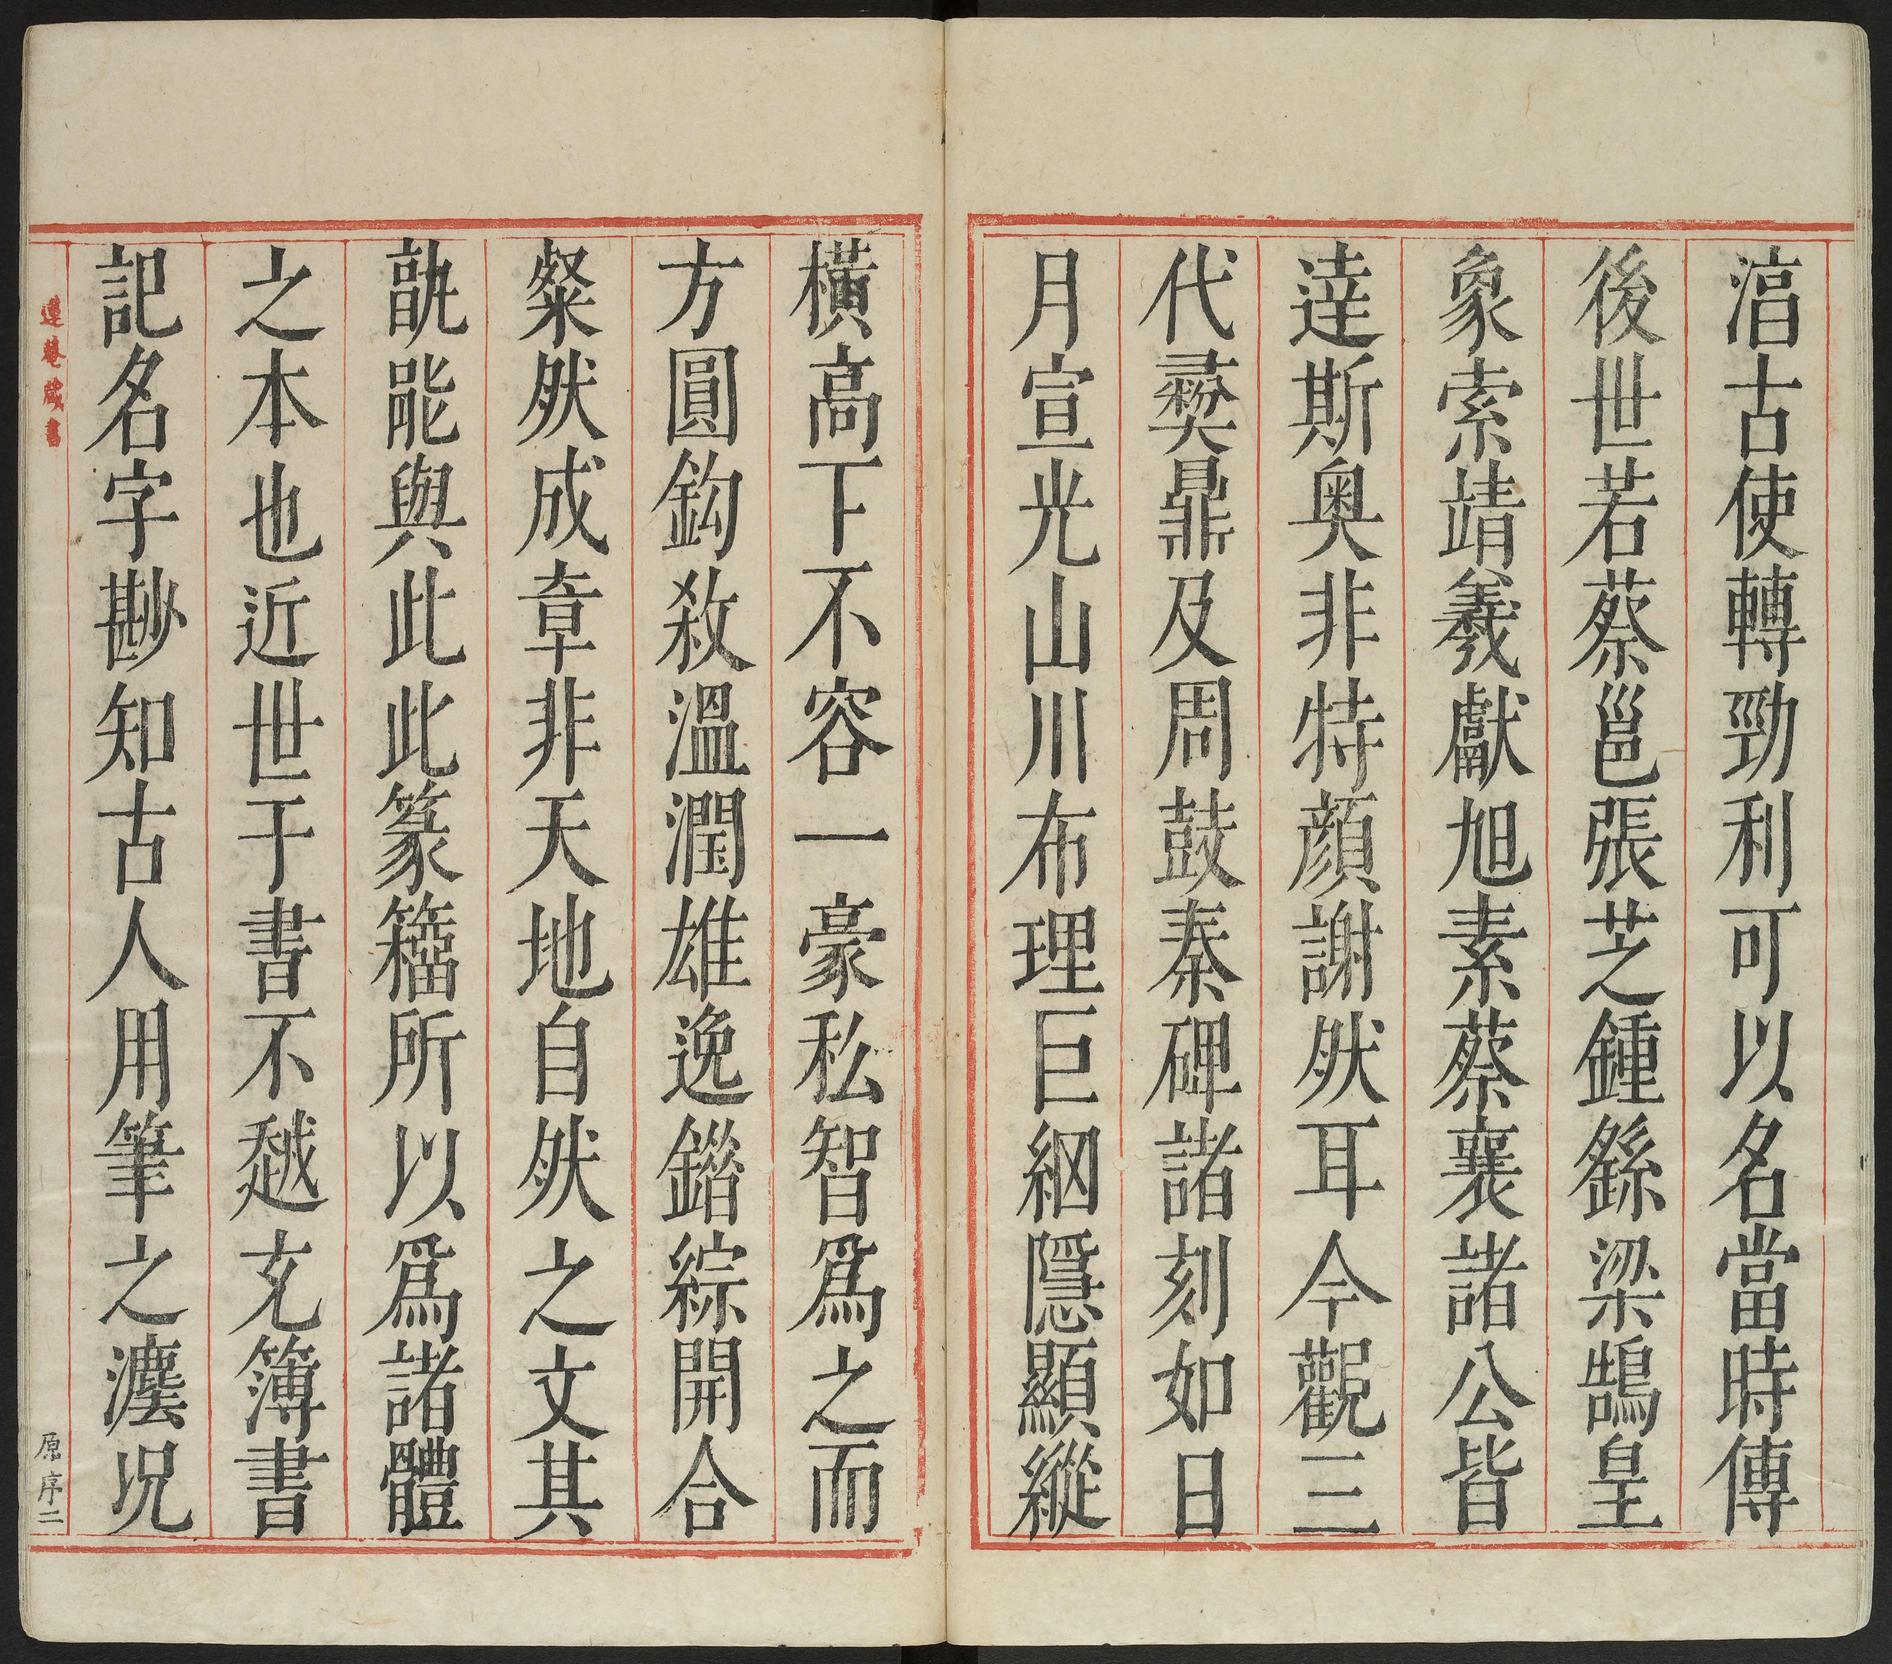 湻古使轉勁利可以名當時傳
後世若蔡邕張芝鍾繇梁鵠皇
象索靖羲獻旭素蔡襄諸公皆
逹斯奥非特顔謝然耳今觀三
代彞鼎及周鼓秦碑諸刻如日
月宣光山川布理巨細隱顯縱
橫高下不容一豪私智爲之而
方圓鈎殺溫潤雄逸錯綜開合
粲然成章非天地自然之文其
孰能與此此篆籀所以爲諸體
之本也近世于書不越充簿書
記名字尠知古人用筆之灋況
蓮菴藏書
原序二